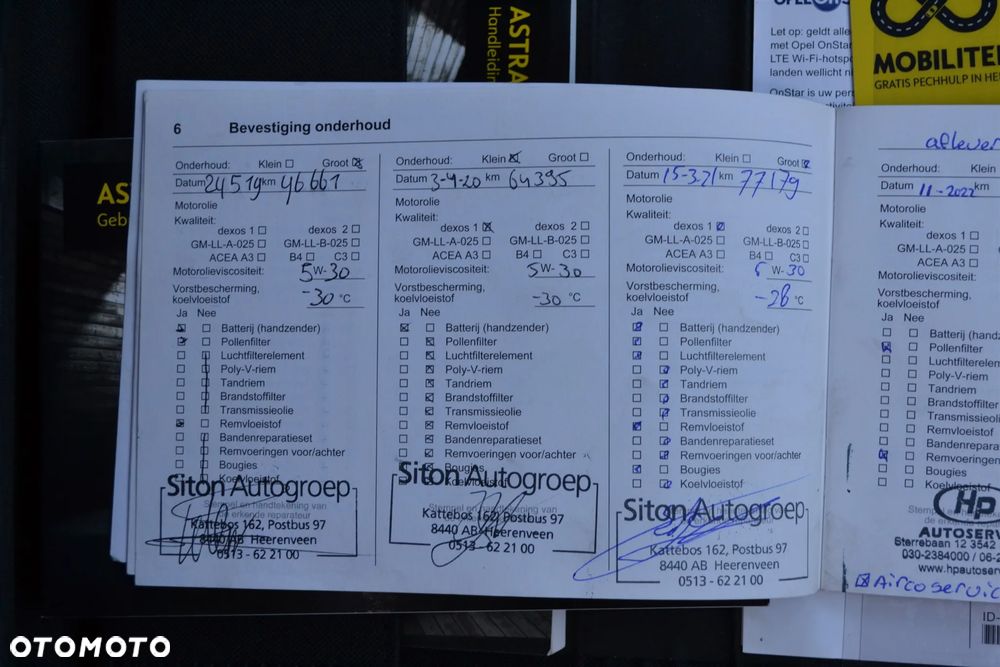 ASTRA
Handleiding
Let op: geldt alle
met Opel OnStar
LTE Wi-Fi-hotsp
landen wellicht ni
OnStar is uw per
MOBILITEI
GRATIS PECHHULP IN HE
ASTRA
Geb
6 Bevestiging onderhoud
Onderhoud: Klein Groot
Datum 24 5 19 km 46661
Motorolie
Kwaliteit:
dexos 1 dexos 2
GM-LL-A-025 GM-LL-B-025
ACEA A3 B4 C3
Motorolieviscositeit: 5W-30
Vorstbescherming,
koelvloeistof -30 °C
Ja Nee
Batterij (handzender)
Pollenfilter
Luchtfilterelement
Poly-V-riem
Tandriem
Brandstoffilter
Transmissieolie
Remvloeistof
Bandenreparatieset
Remvoeringen voor/achter
Bougies
Koelvloeistof
Siton Autogroep
Stempel en handtekening van
de erkende reparateur
Kattebos 162, Postbus 97
8440 AB Heerenveen
0513 - 62 21 00
Onderhoud: Klein Groot
Datum 3-4-20 km 64395
Motorolie
Kwaliteit:
dexos 1 dexos 2
GM-LL-A-025 GM-LL-B-025
ACEA A3 B4 C3
Motorolieviscositeit: 5W-30
Vorstbescherming,
koelvloeistof -30 °C
Ja Nee
Batterij (handzender)
Pollenfilter
Luchtfilterelement
Poly-V-riem
Tandriem
Brandstoffilter
Transmissieolie
Remvloeistof
Bandenreparatieset
Remvoeringen voor/achter
Bougies
Koelvloeistof
Siton Autogroep
Kattebos 162, Postbus 97
8440 AB Heerenveen
0513 - 62 21 00
Onderhoud: Klein Groot
Datum 15-3-21 km 77179
Motorolie
Kwaliteit:
dexos 1 dexos 2
GM-LL-A-025 GM-LL-B-025
ACEA A3 B4 C3
Motorolieviscositeit: W-30
Vorstbescherming,
koelvloeistof -28 °C
Ja Nee
Batterij (handzender)
Pollenfilter
Luchtfilterelement
Poly-V-riem
Tandriem
Brandstoffilter
Transmissieolie
Remvloeistof
Bandenreparatieset
Remvoeringen voor/achter
Bougies
Koelvloeistof
Siton Autogroep
Kattebos 162, Postbus 97
8440 AB Heerenveen
0513 - 62 21 00
aflever
Onderhoud: Klein
Datum 11-2022 km
Motorolie
Kwaliteit:
dexos 1
GM-LL-A-025
ACEA A3
Motorolieviscositeit:
Vorstbescherming,
koelvloeistof
Ja Nee
Batterij (hand
Pollenfilter
Luchtfilterelem
Poly-V-riem
Tandriem
Brandstoffilter
Transmissieoli
Remvloeistof
Bandenrepara
Remvoeringen
Bougies
Koelvloeistof
HP
AUTOSERV
Sterrebaan 12 3542
030-2384000 / 06-2
www.hpautoserv
Aircoservic
ID-
OTOMOTO